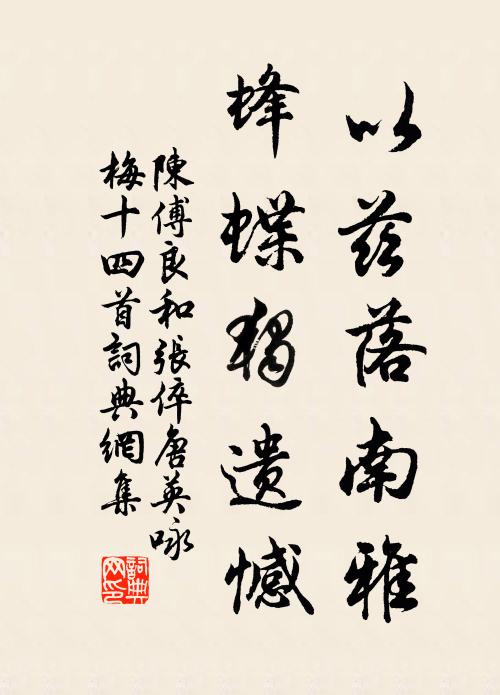 以茲落南雅
蜂蝶獨遺憾
陳傅良和張倅唐英咏
梅十四首詞典網集
詞典网印